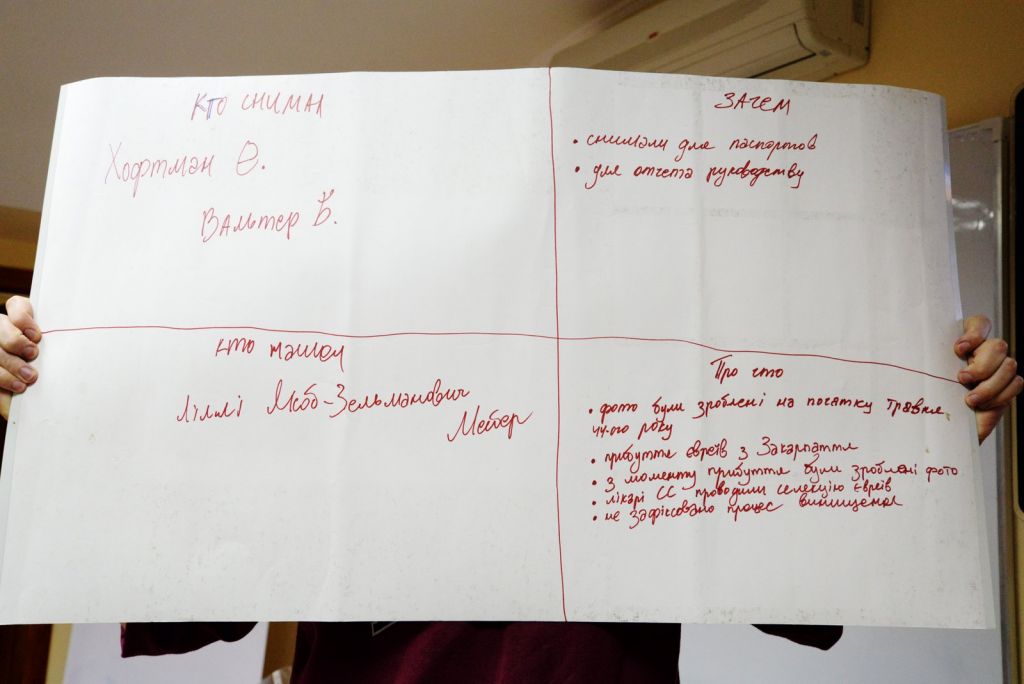 КТО СНИМАЛ
Хофтман Э.
Вальтер Б.
ЗАЧЕМ
• снимали для паспортов
• для отчета руководству
кто нашел
Ліллі Якоб-Зельманович
Мейер
Про что
• фото були зроблені на початку травня
44-ого року
• прибуття євреїв з Закарпаття
• з моменту прибуття були зроблені фото
• лікарі СС проводили селекцію євреїв
• не зафіксовано процес винищення